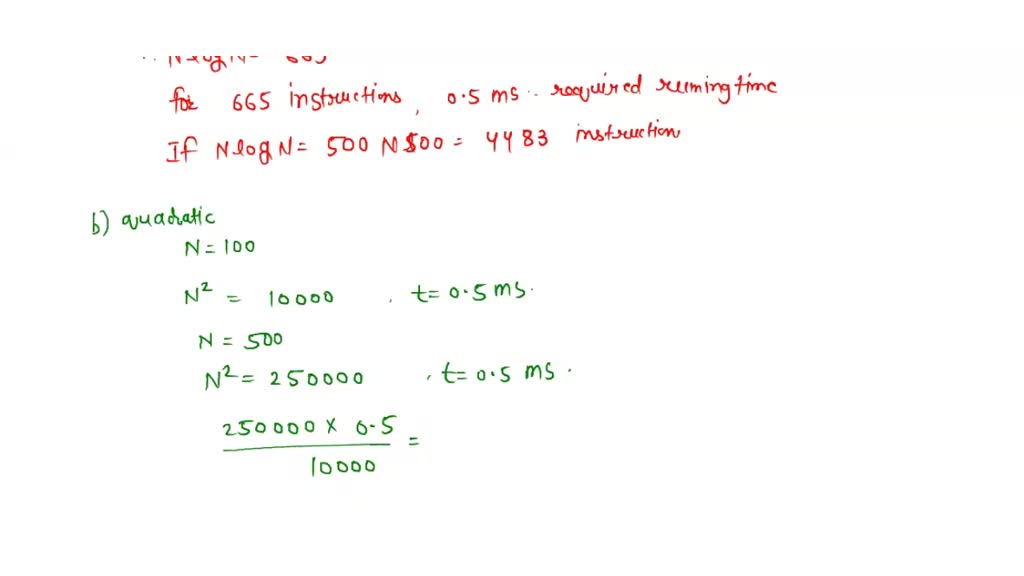 N log N = 665
for 665 instructions, 0.5 ms.. required runing time
If N log N = 500 N 500 = 4483 instruction
b) quadratic
N = 100
N² = 10000 , t = 0.5 ms.
N = 500
N² = 250000 , t = 0.5 ms.
250000 x 0.5 =
10000